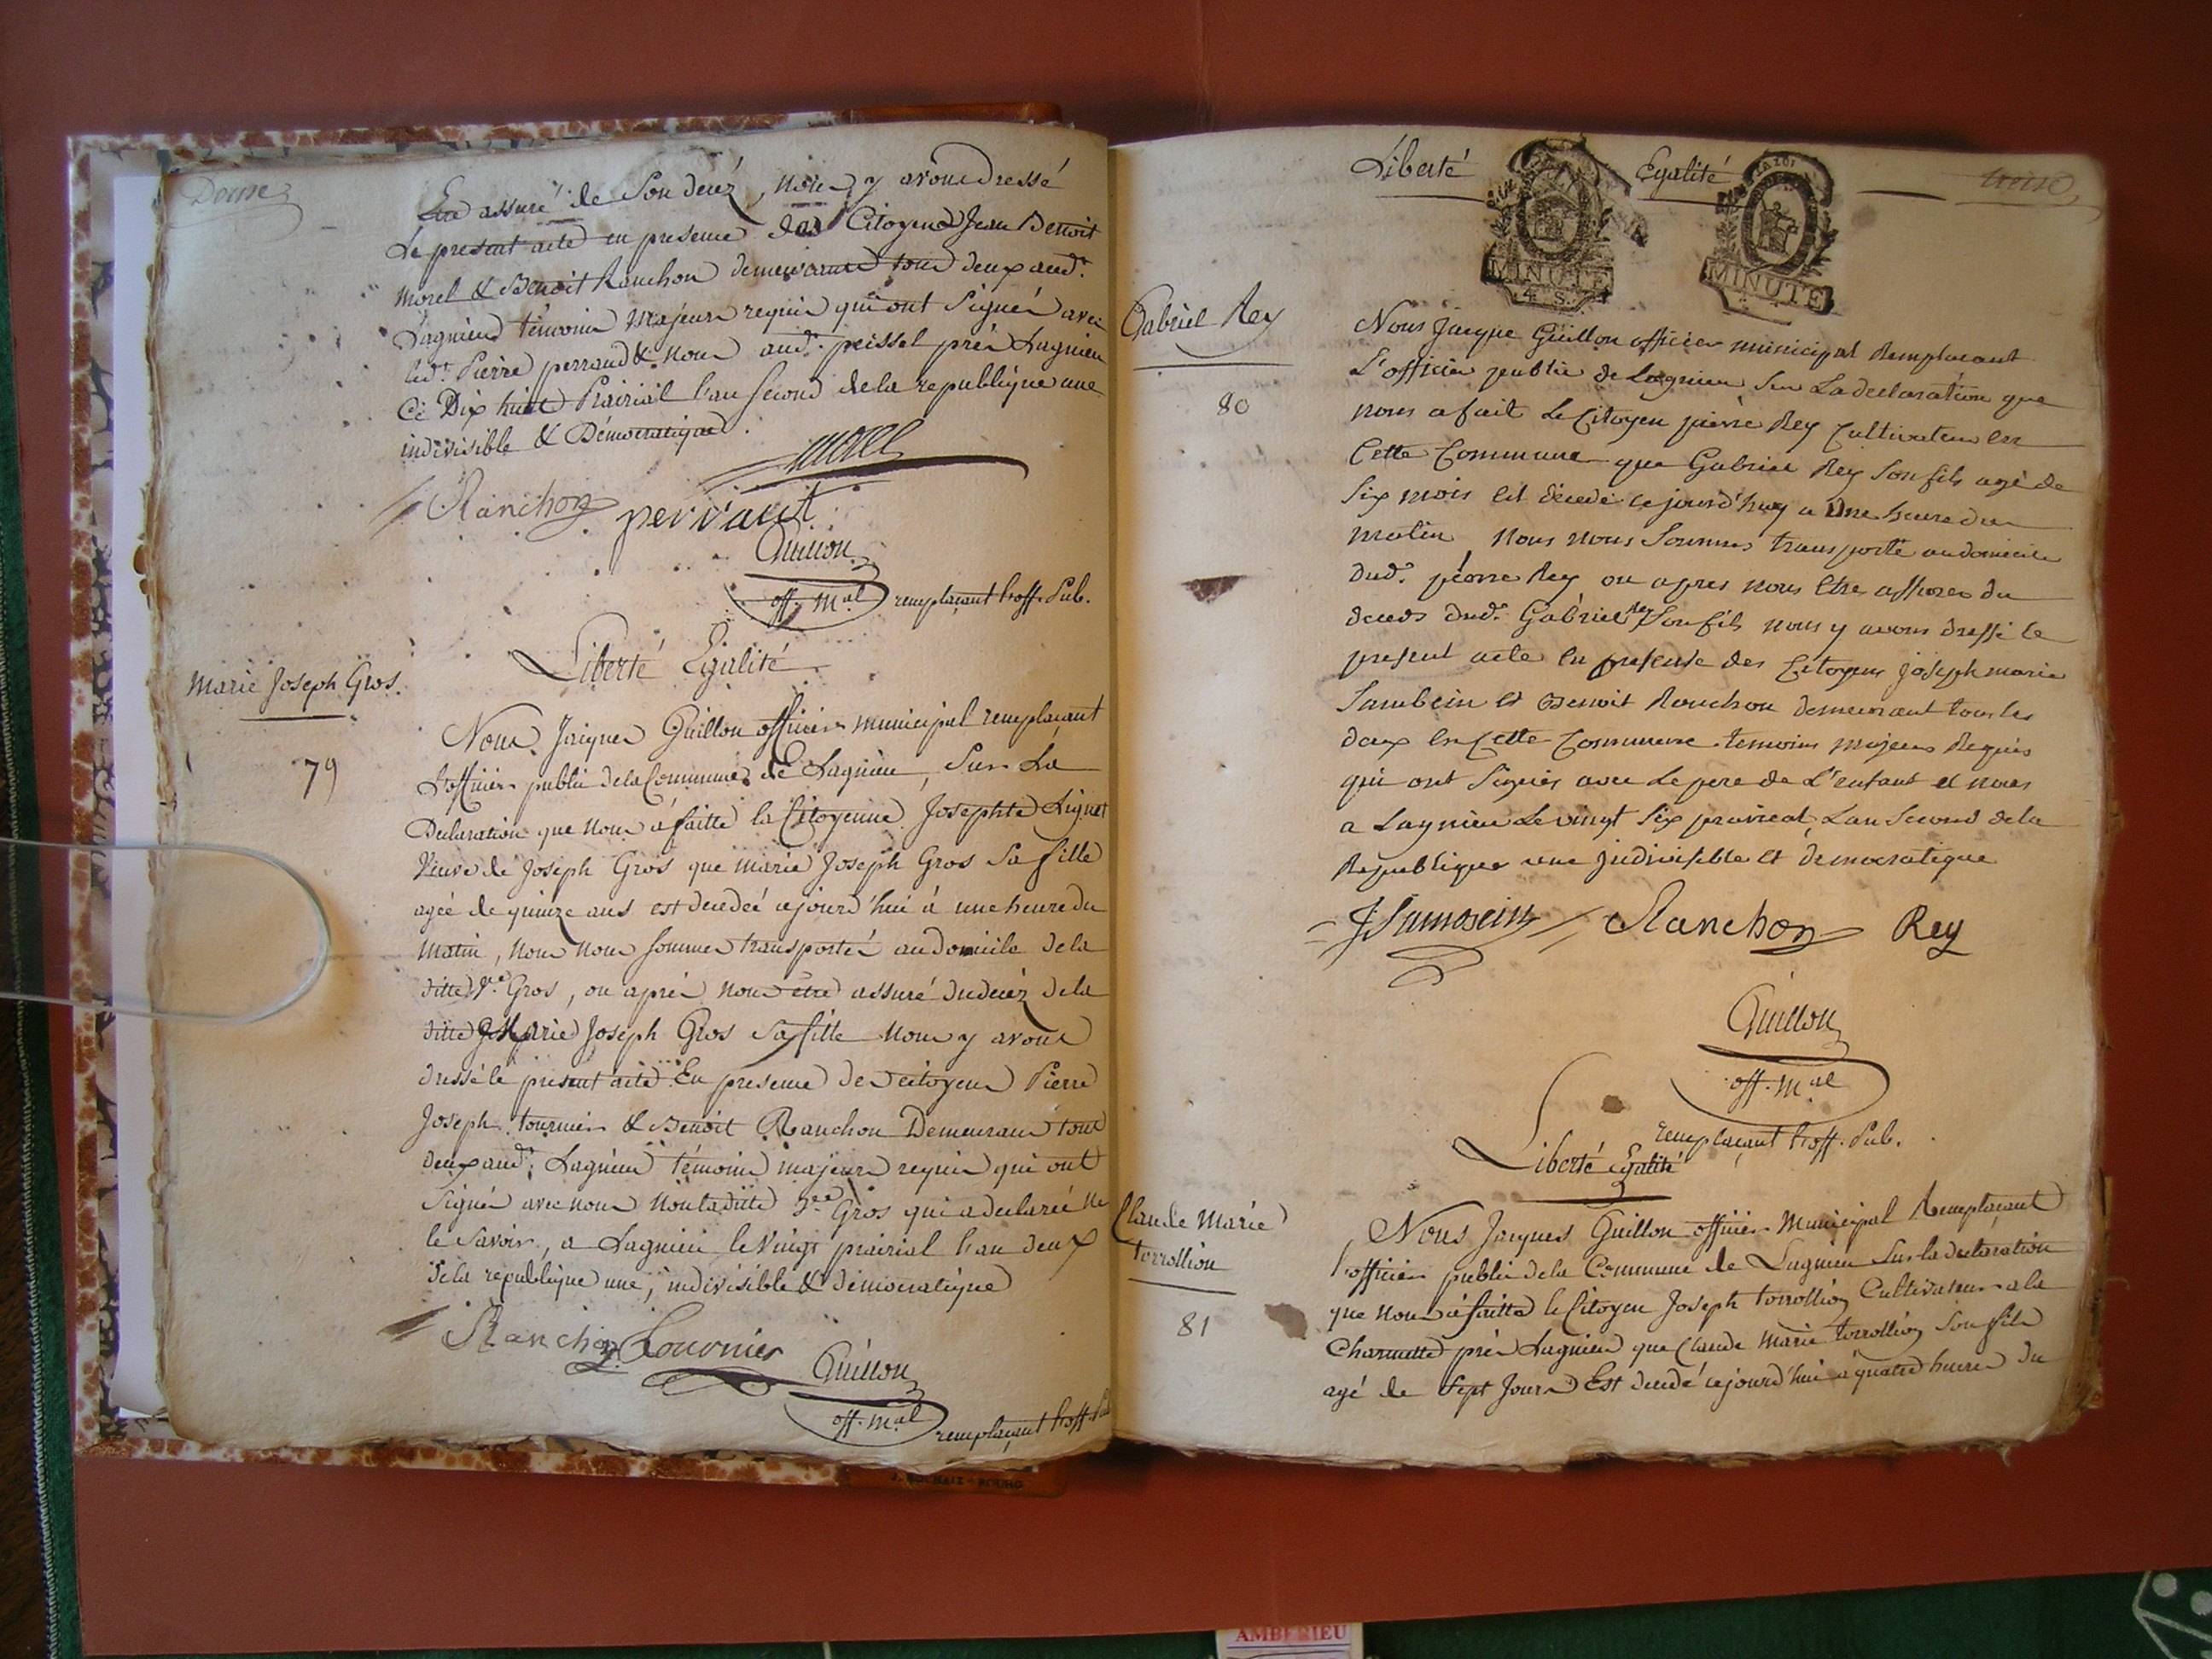 Douze
Etre assuré de Son decéz, nous y avons dressé
Le present acte en presence des Citoyens Jean Benoit
morel & Benoit Ranchon demeurants tous deux aud.t
Lagnieu témoins Majeurs requis qui ont Signés avec
led.t Pierre perrand & nous aud.t peissel près Lagnieu
Ce Dix huit Prairial l'an Second de la republique une
indivisible & Démocratique.
morel
Ranchon perraut
Guillon
off. m.al remplaçant l'off. Pub.
Liberté Egalité
Marie Joseph Gros.
79
Nous Jacques Guillon officier municipal remplaçant
L'officier public de la Commune de Lagnieu, Sur La
Declaration que nous à faitte la Citoyenne Josephte Lignet
Veuve de Joseph Gros que marie Joseph Gros Sa fille
agée de quinze ans est decedée cejourd'hui à une heure du
matin, nous nous sommes transportés au domicile de la
ditte V.e Gros, ou après nous être assuré du decéz de la
ditte Marie Joseph Gros Sa fille nous y avons
dressé le present acte En presence des citoyens Pierre
Joseph tournier & Benoit Ranchon Demeurans tous
deux aud.t Lagnieu témoins majeurs requis qui ont
Signés avec nous non la ditte V.e Gros qui a declarée ne
le Savoir, a Lagnieu le Vingt prairial l'an deux
de la republique une, indivisible & démocratique
Ranchon Tournier
Guillon
off. m.al remplaçant l'off. Pub
Liberté Egalité treize
MINUTE MINUTE
4. S.
Gabriel Rey
80
Nous Jacque Guillon officier municipal Remplacant
L'officier public de Lagnieu Sur La declaration que
nous a fait Le Citoyen pierre Rey Cultivateur en
Cette Commune que Gabriel Rey Son fils agé de
Six mois est décedé cejourd'huy a Une heure du
matin nous nous Sommes transporté au domicile
dud.t pierre Rey ou apres nous Etre assurés du
deceds dud.t Gabriel Rey Son fils nous y avons dressé le
present acte en presense des Citoyens joseph marie
Sambein et Benoit Ronchon demeurant tous les
deux en Cette Commune temoins majeurs Requis
qui ont Signés avec Le pere de L'enfant et nous
a Lagnieu Le vingt Six praireal Lan Second de la
Republique une jndivisible et democratique
J Sambein Ranchon Rey
Guillon
off. m.al
remplaçant l'off. Pub.
Liberté Egalité
Claude Marie
torrollion
81
Nous Jacques Guillon officier Municipal Remplaçant
l'officier public de la Commune de Lagnieu Sur la declaration
que nous à faitte le Citoyen Joseph torrollion Cultivateur a la
Charmette près Lagnieu que Claude Marie torrollion Son fils
agé de Sept Jours Est decedé cejourd'hui à quatre heures du
AMBERIEU